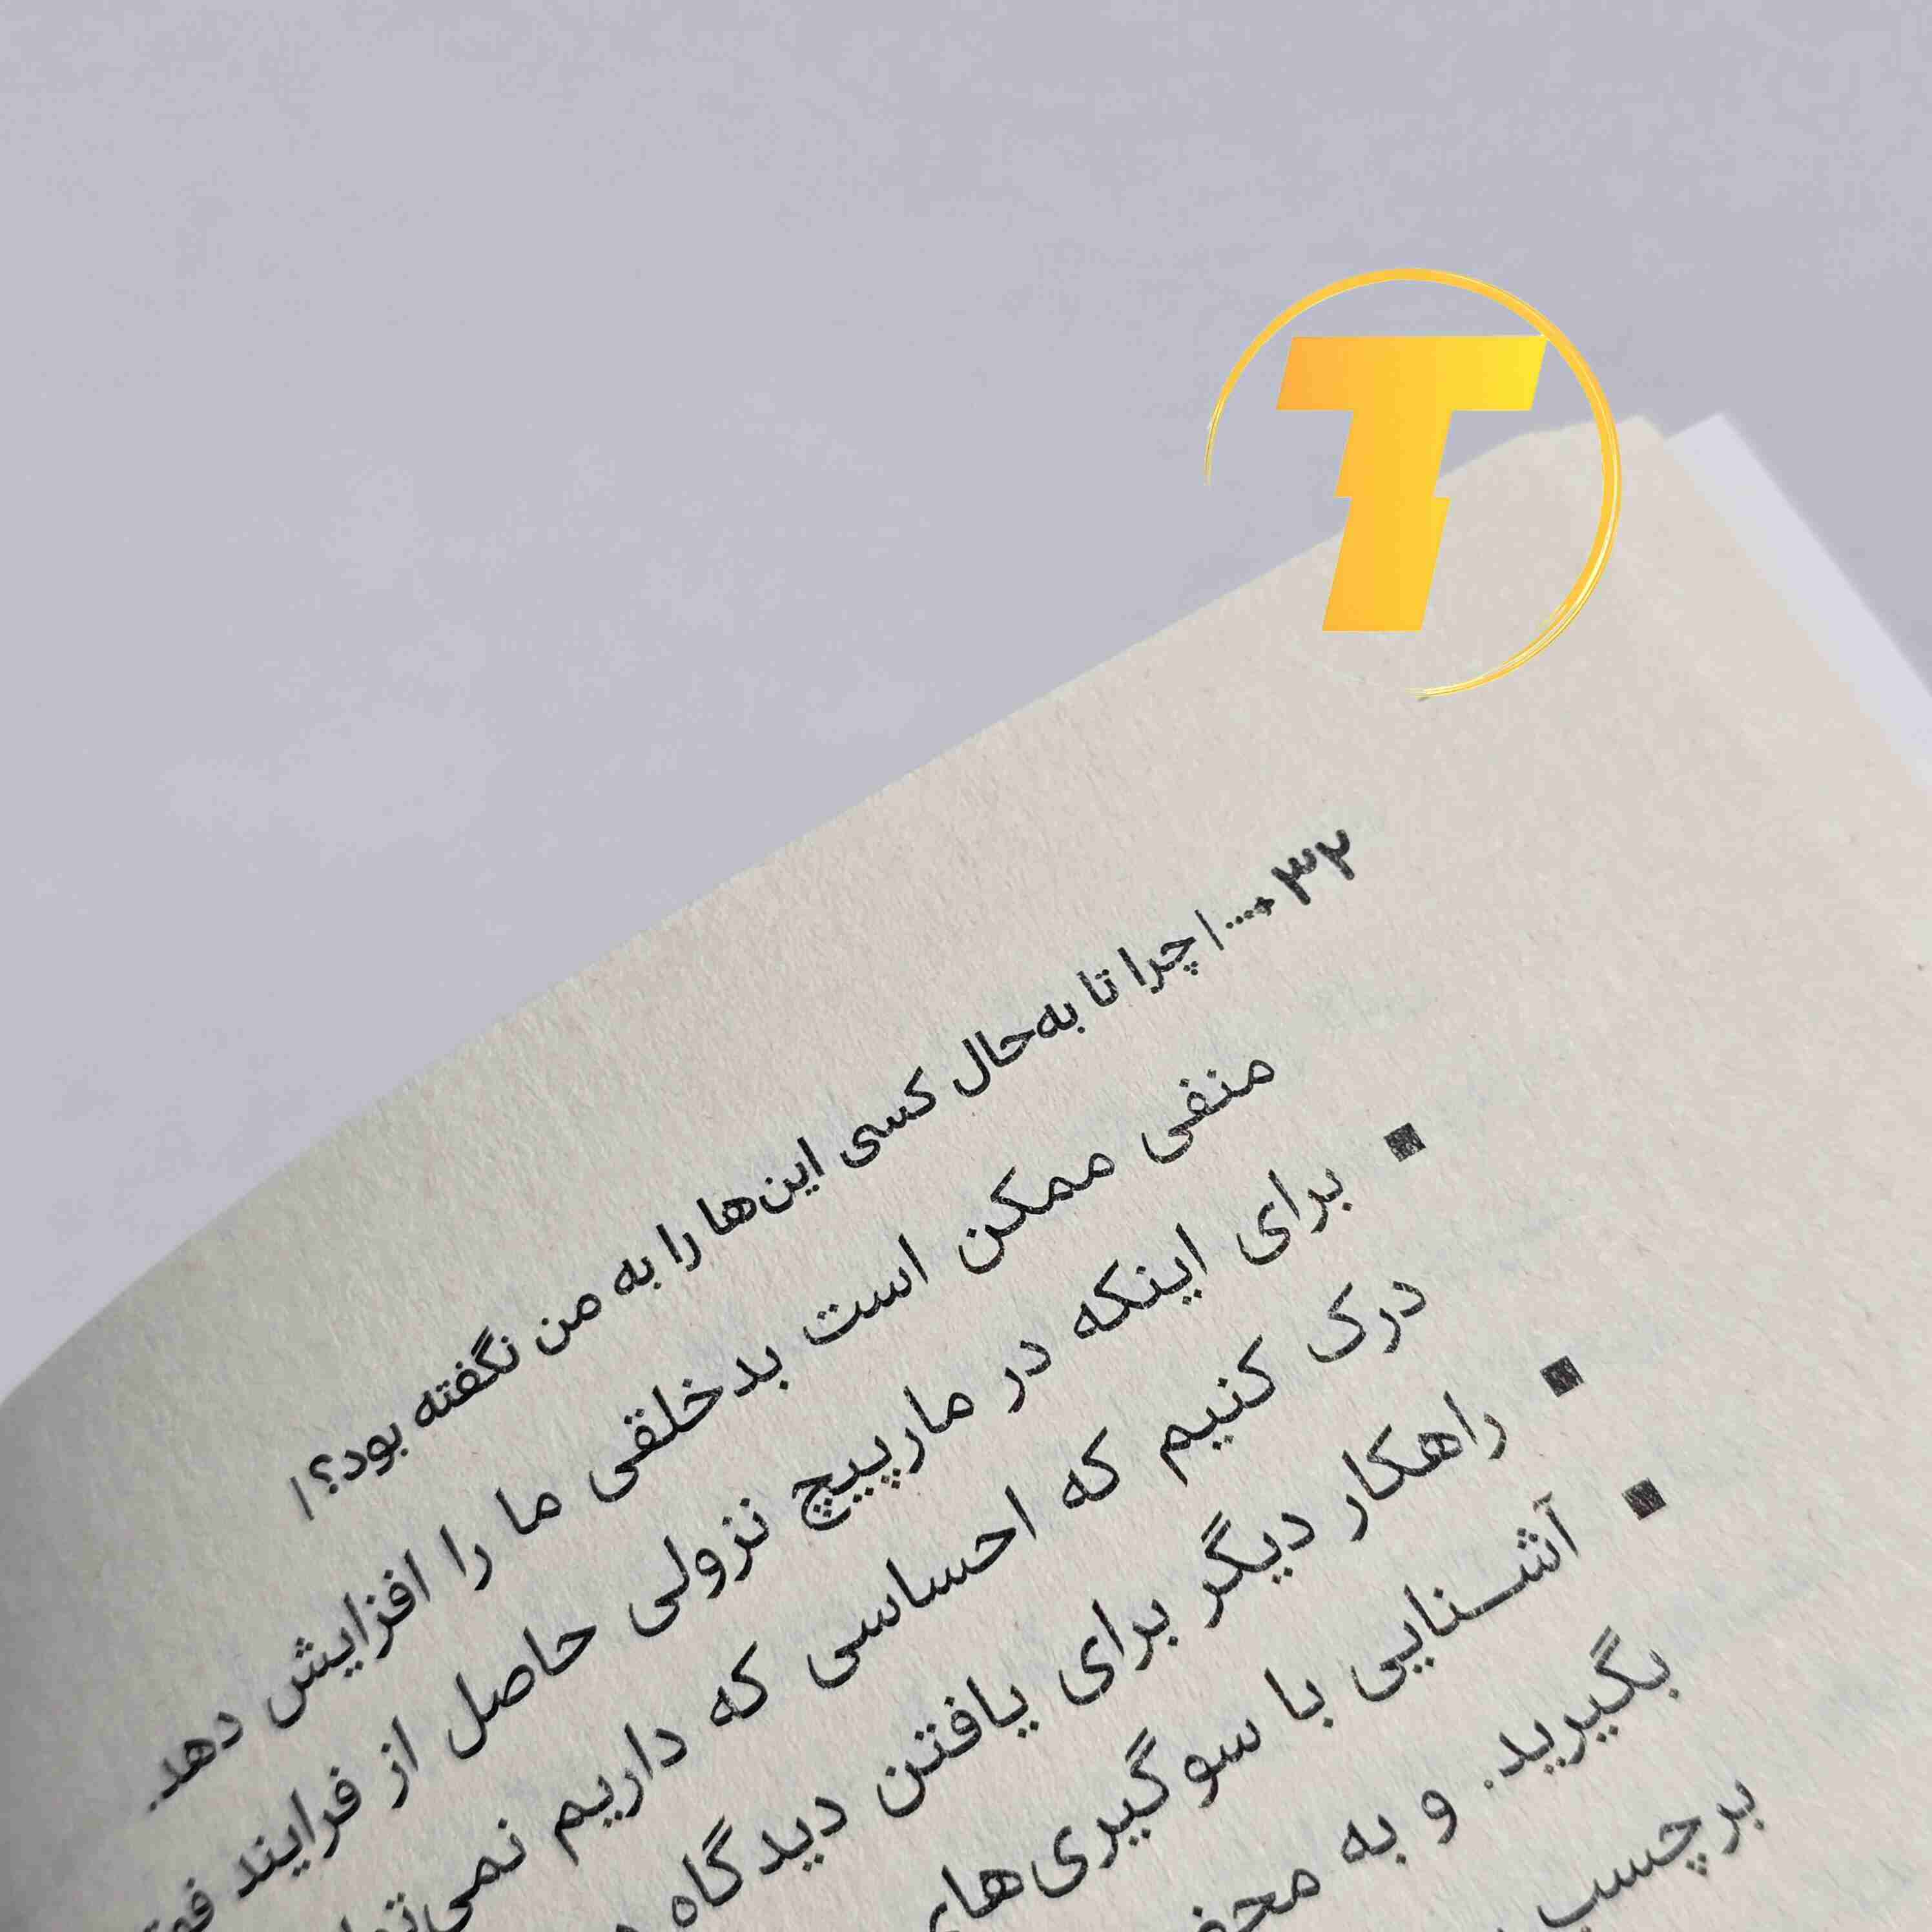 T
۳۲ ...| چرا تا به‌حال کسی این‌ها را به من نگفته بود؟ |
منفی ممکن است بدخلقی ما را افزایش دهد.
▪ برای اینکه در مارپیچ نزولی حاصل از فرایند
درک کنیم که احساسی که داریم
▪ راهکار دیگر برای یافتن دیدگاه
▪ آشنایی با سوگیری‌های
بگیرید. و به
برچسب